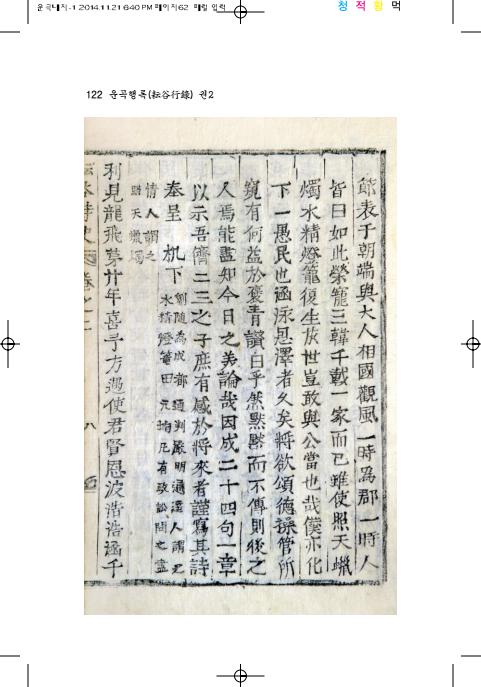 운곡내지-1 2014.11.21 6:40 PM 페이지62 매월 입력
청 적 황 먹
122 운곡행록(耘谷行錄) 권2
節表于朝端與大人相國觀風一時爲郡一時人
皆曰如此榮寵三韓千載一家而已雖使照天蠟
燭水精燈籠復生於世豈敢與公當也哉僕亦化
下一愚民也涵泳恩澤者久矣將欲頌德操管所
窺有何益於褒青讚白乎然默默而不傳則後之
人焉能盡知今日之美論哉因成二十四句一章
以示吾儕二三之子庶有感於將來者謹寫其詩
奉呈 机下
劉隨爲成都通判嚴明通達人謂之
水精燈籠田元均凡有政訟問之盡
情人謂之
照天蠟燭
利見龍飛第廿年喜予方遇使君賢恩波浩浩涵千
卷之二
八